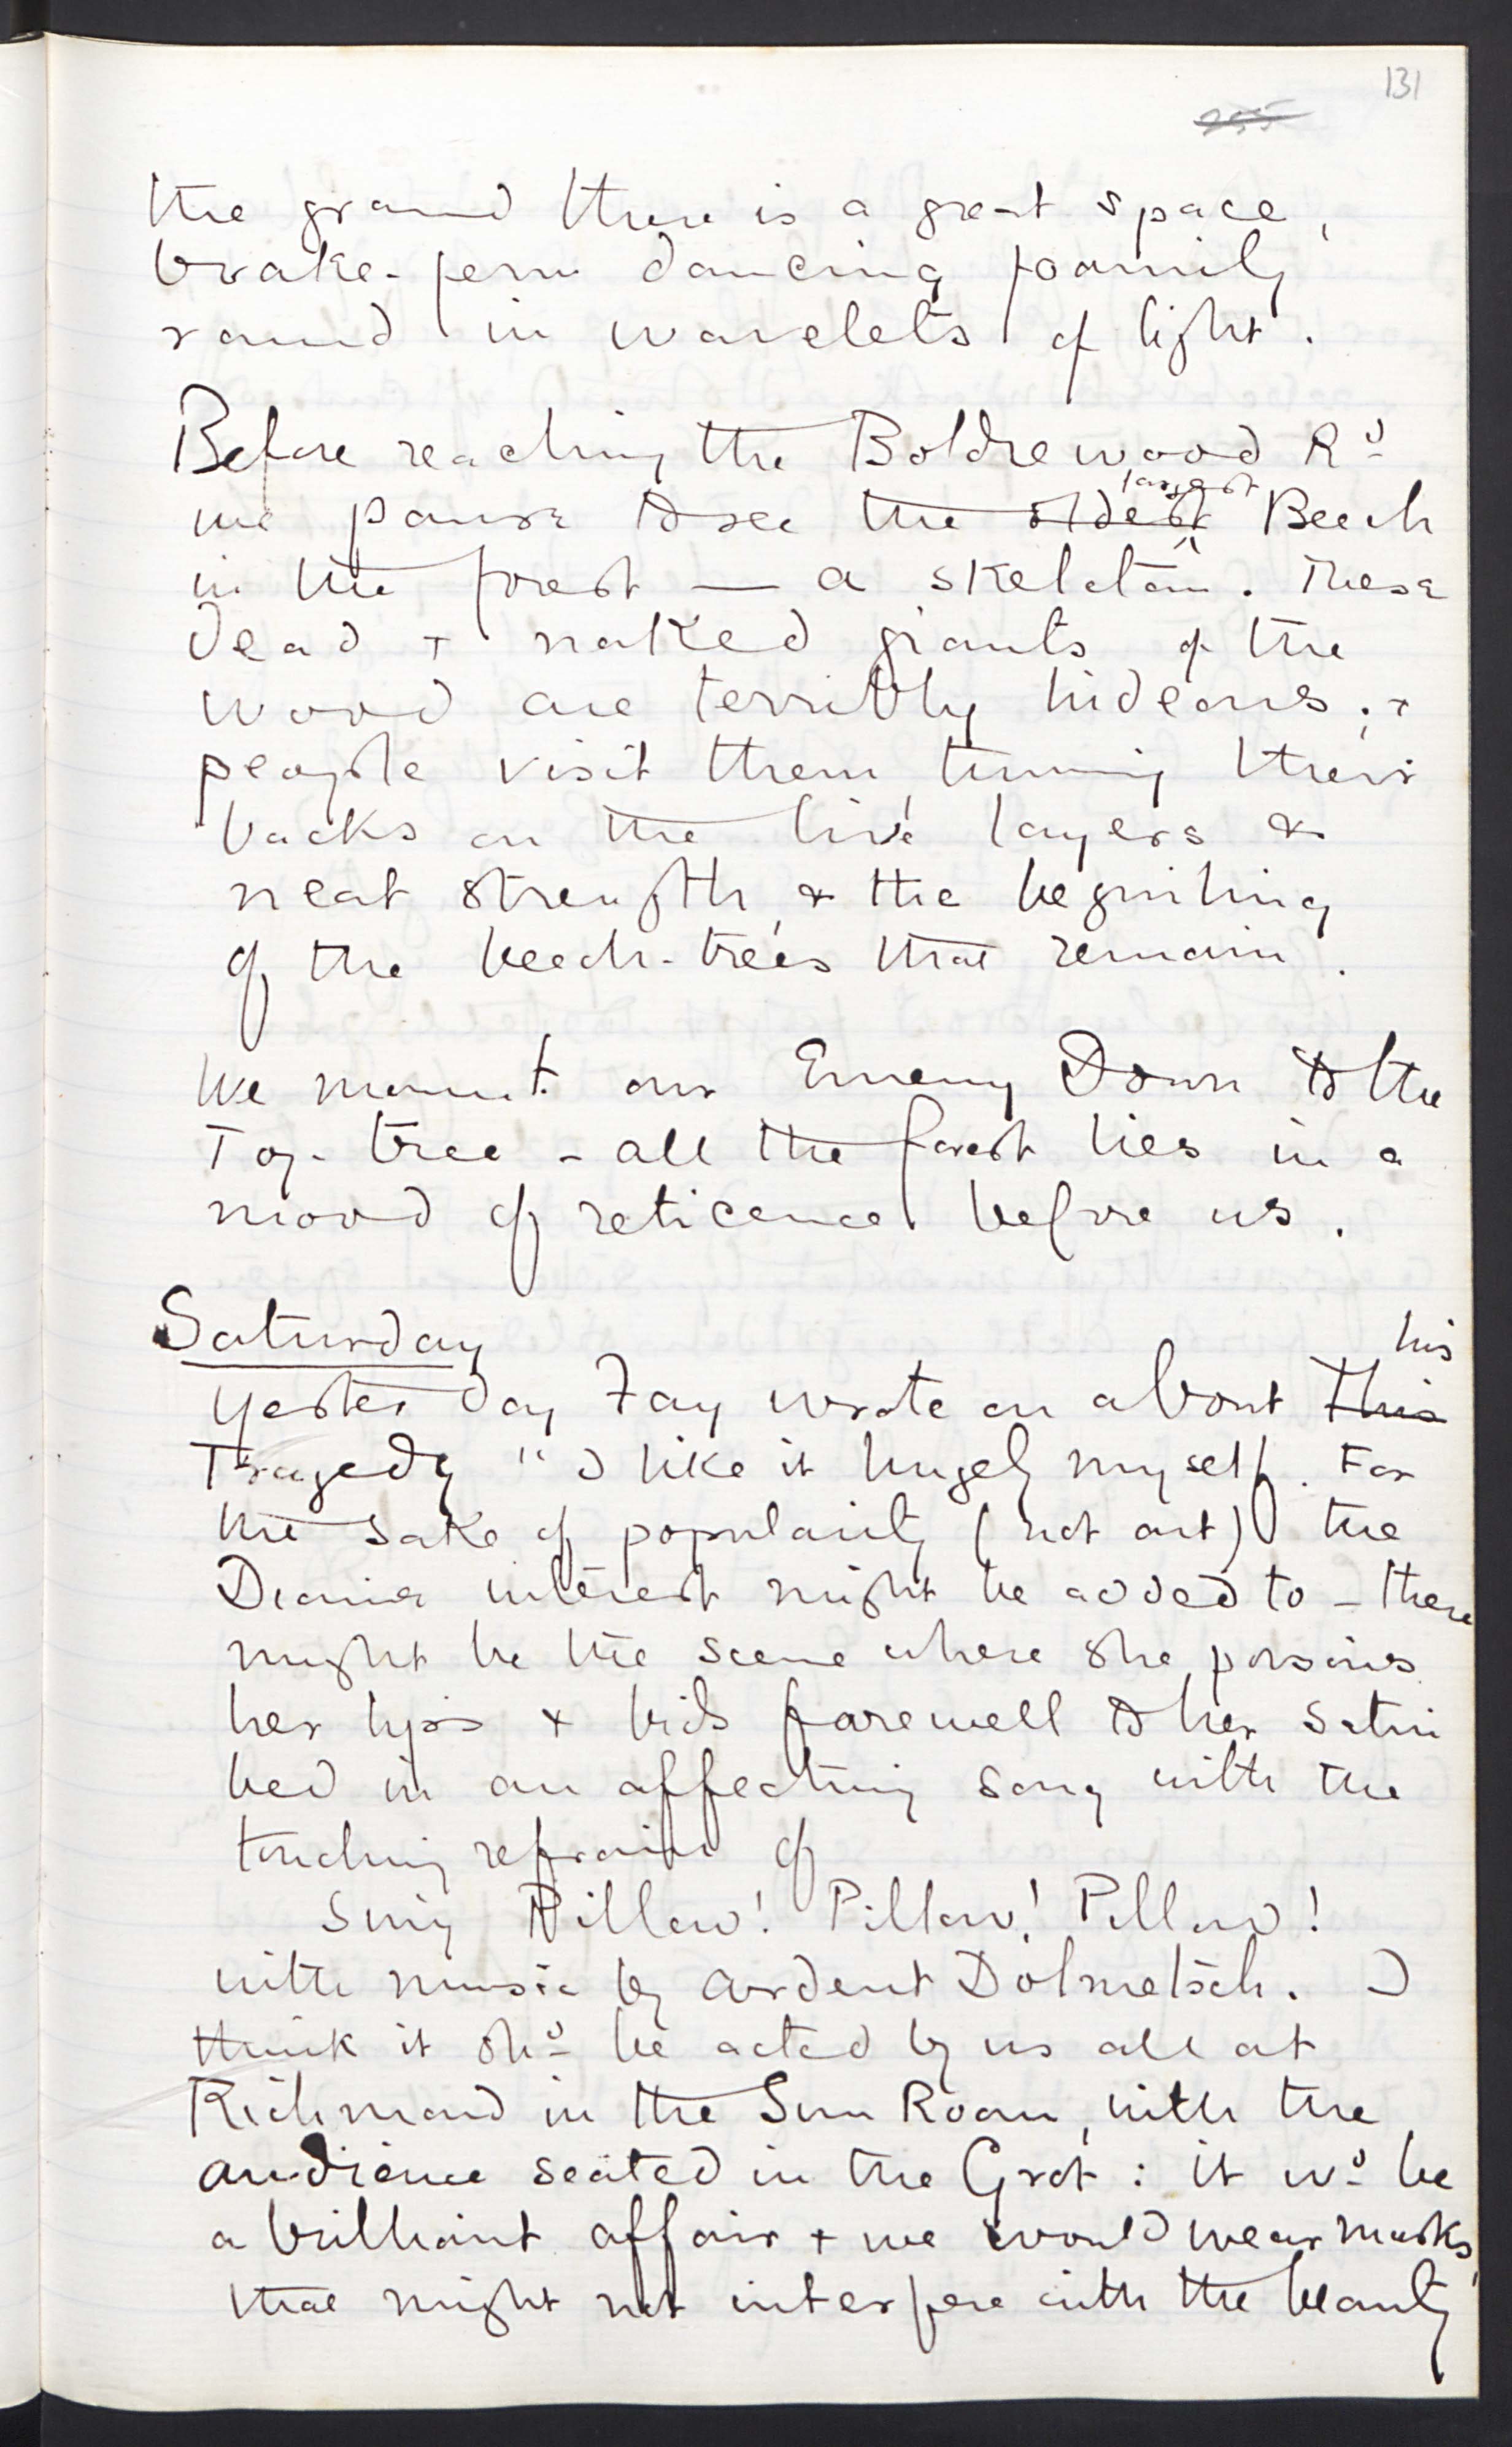 131
255
the ground there is a great space,
brake-fern dancing foamily
round in wavelets of light.
Before reaching the Boldrewood Rd
we pause to see the oldest largest Beech
in the forest — a skeleton. These
dead + naked giants of the
wood are terribly hideous; +
people visit them, turning their
backs on the live layers &
neat strength, & the beguiling
of the beech-trees that remain.
We mount our Emery Down to the
Top-tree - all the forest lies in a
mood of reticence before us.
Saturday
Yesterday Fay wrote on about this his
Tragedy "I like it hugely myself. For
the sake of popularity (not art) the
Dramia interest might be added to - there
might be the scene where she poisons
her lips & bids farewell to her satin
bed in an affecting song with the
touching refrain of
Sing Pillow! Pillow! Pillow!
with music by ardent Dolmetsch. I
think it shd be acted by us all at
Richmond in the Sun Room, with the
audience seated in the Grot: it wd be
a brilliant affair + we would wear masks,
that might not interfere with the beauty